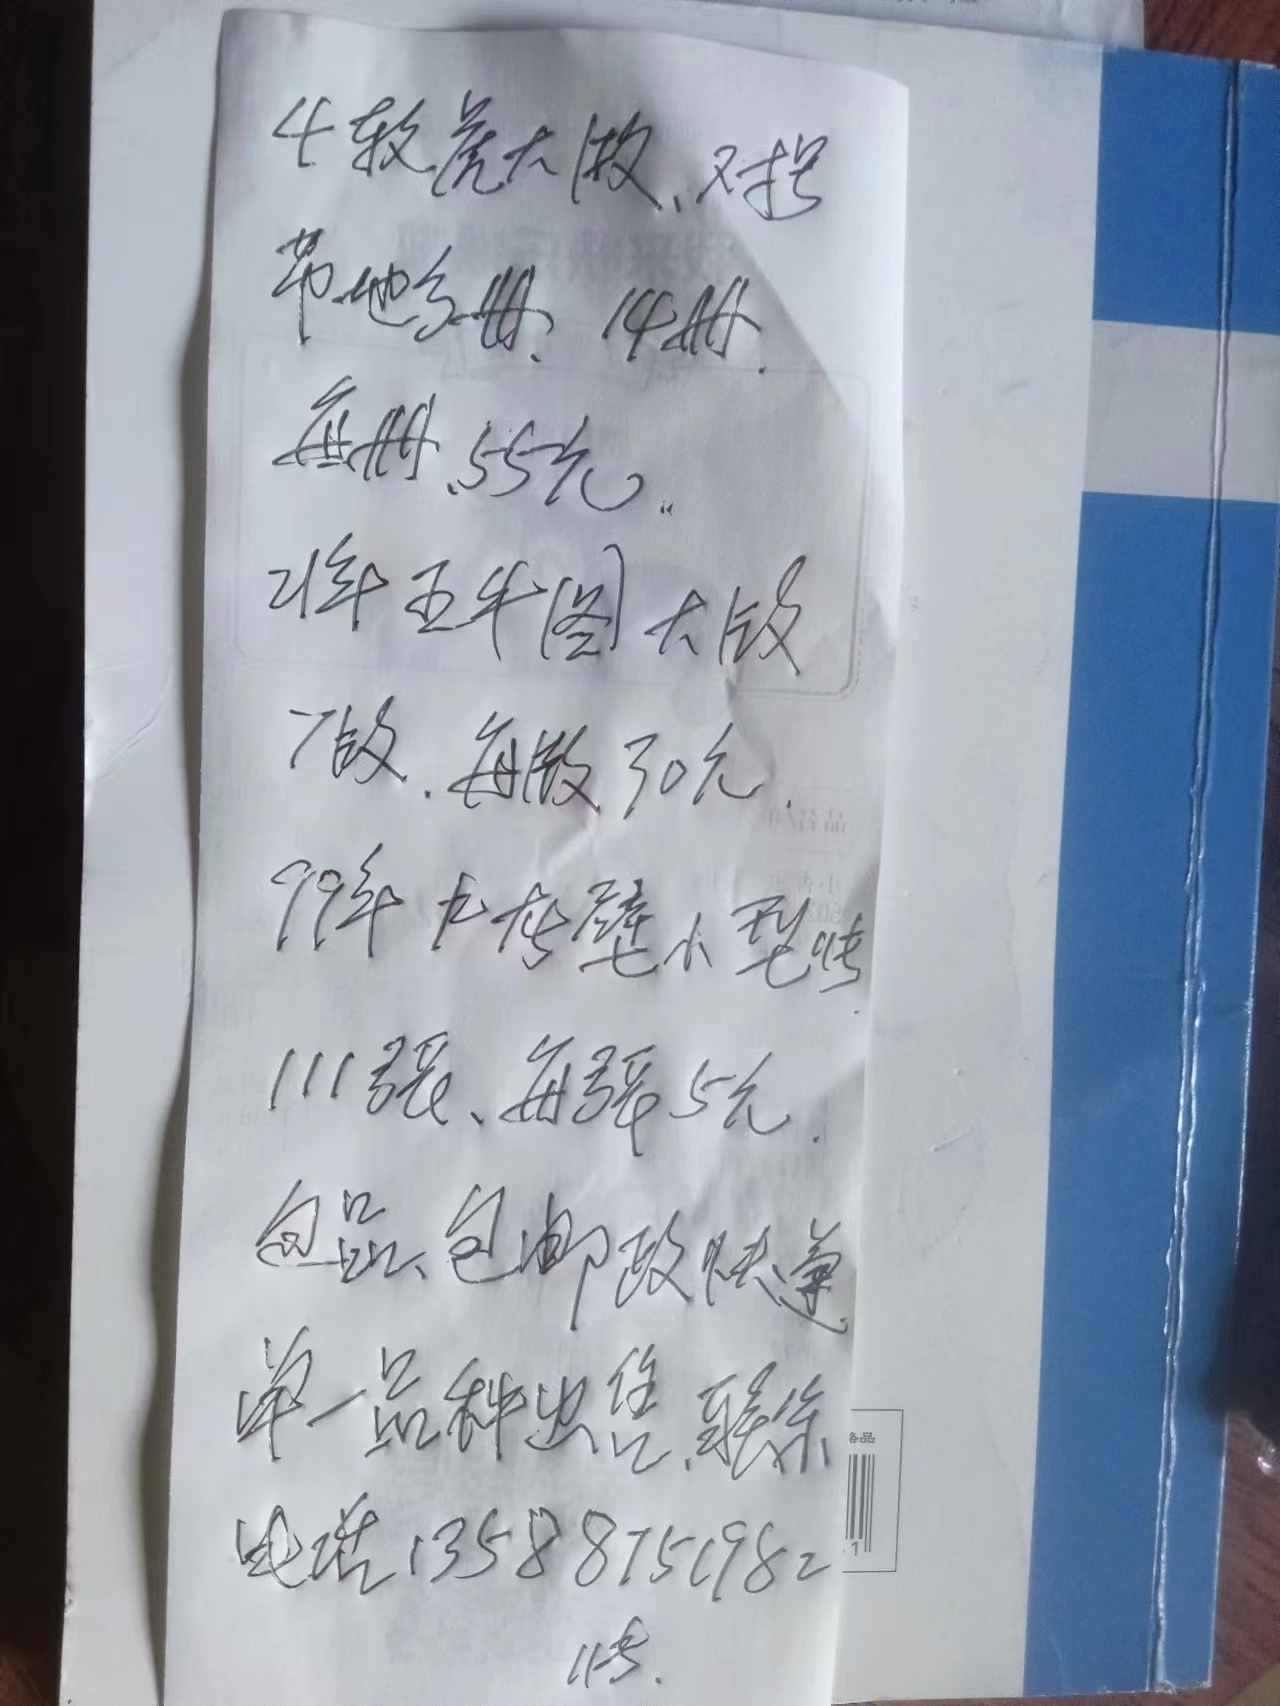 4轮虎大版、对号
带地名册、14册.
每册、55元.
21年五牛图大版
7版.每版30元.
99年九龙壁小型张.
111張、每張5元.
包品、包邮政快递.
单一品种出售、联系
电话13588751982